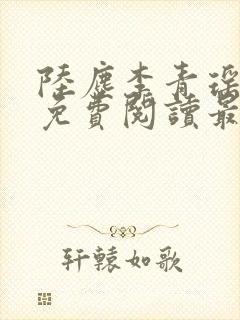 陸塵李青瑤
免費閱讀最
軒轅如歌